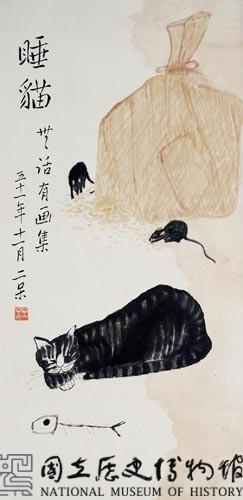 睡貓
無话有画集
五十一年十一月二呆
國立歷史博物館
NATIONAL MUSEUM OF HISTORY